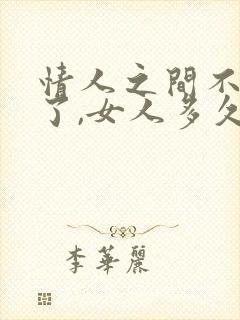 情人之間不
了,女人多久
李華麗